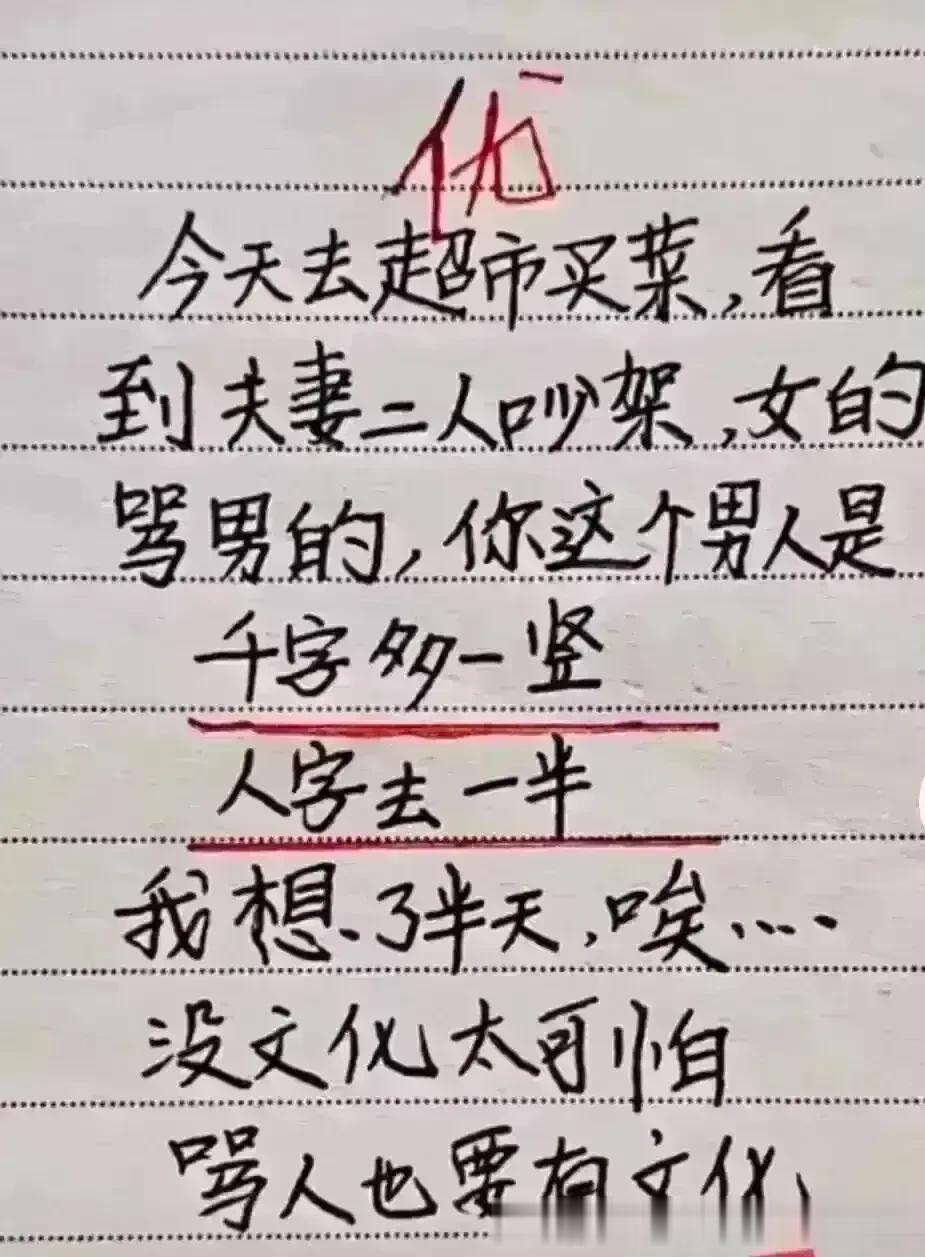 优
今天去超市买菜，看
到夫妻二人吵架，女的
骂男的，你这个男人是
千字多一竖
人字去一半
我想了半天，唉……
没文化太可怕
骂人也要有文化，